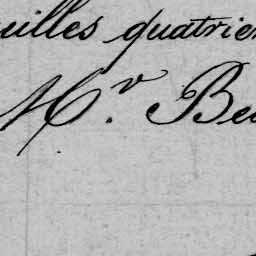 uilles quatrie
Mr. Be